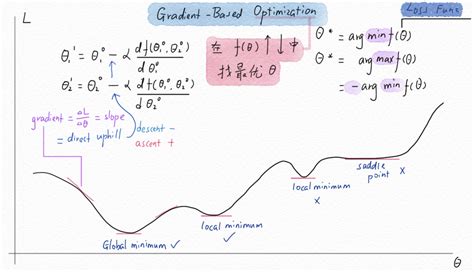 L
Gradient-Based Optimization
Loss Func
θ₁¹ = θ₁⁰ - α df(θ₁⁰, θ₂⁰) / dθ₁⁰
θ₂¹ = θ₂⁰ - α df(θ₁⁰, θ₂⁰) / dθ₂⁰
在 f(θ) ↑ ↓ 中
找最优 θ
θ* = arg min f(θ)
θ* = arg max f(θ)
= - arg min f(θ)
gradient = ΔL/Δθ = slope
= direct uphill
descent -
ascent +
Global minimum ✓
local minimum ✓
local minimum
×
saddle point ×
θ